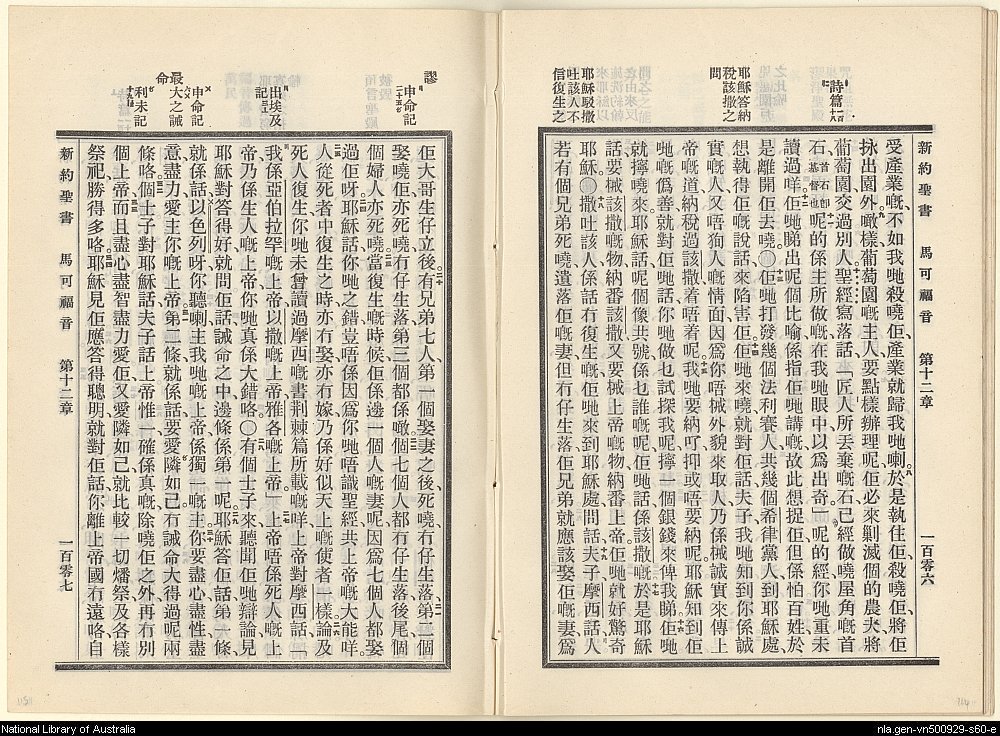 詩篇
耶穌答納
稅該撒之
問
耶穌駁撒
吐該人不
信復生之
新約聖書 馬可福音 第十二章 一百零六
受產業嘅、不如我哋殺曉佢、產業就歸我哋喇、於是執住佢、殺曉佢、將佢
抹出園外、噉樣葡萄園嘅主人、要點樣辦理呢、佢必來剿滅個的農夫、將
葡萄園交過別人、聖經寫落話、匠人所丟棄嘅石、已經做曉屋角嘅首
石、首石即基督也呢的係主所做嘅、在我哋眼中以爲出奇、呢的經你哋重未
讀過咩、佢哋睇出呢個比喻係指佢哋講嘅、故此想捉佢、但係怕百姓、於
是離開佢去曉、〇佢哋打發幾個法利賽人、共幾個希律黨人、到耶穌處、
想執得佢嘅說話來陷害佢、佢哋來曉、就對佢話、夫子、我哋知到你係誠
實嘅人、又唔狥人嘅情面、因爲你唔械外貌來取人、乃係械誠實來傳上
帝嘅道、納稅過該撒着唔着呢、我哋要納吖、抑或唔要納呢、耶穌知到佢
哋嘅爲善、就對佢哋話、你哋做乜試探我呢、擰一個銀錢來俾我睇、佢哋
就擰曉來、耶穌話、呢個像共號、係乜誰嘅呢、佢哋話、係該撒嘅、於是耶穌
話、要械該撒嘅物納番該撒、又要械上帝嘅物納番上帝、佢哋就好驚奇
耶穌、〇撒吐該人係話冇復生嘅、佢哋來到耶穌處問話、夫子、摩西話、人
若有個兄弟死曉、遺落佢嘅妻、但冇仔生落、佢兄弟就應該娶佢嘅妻、爲
謬
申命記
二十五
出埃及
記三
最大之誡
命
申命記
六
利未記
十九
佢大哥生仔立後、有兄弟七人、第一個娶妻之後、死曉冇仔生落、第二個
娶曉佢、亦死曉、冇仔生落、第三個都係噉、個七個人都冇仔生落、後尾個
個婦人亦死曉、當復生嘅時候、佢係邊一個人嘅妻呢、因爲七個人都娶
過佢呀、耶穌話、你哋之錯、豈唔係因爲你哋唔識聖經、共上帝嘅大能咩、
人從死者中復生之時、亦冇娶亦冇嫁、乃係好似天上嘅使者一樣、論及
死人復生、你哋未曾讀過摩西嘅書荆棘篇所載嘅咩、上帝對摩西話、
我係亞伯拉罕嘅上帝、以撒嘅上帝、雅各嘅上帝、上帝唔係死人嘅上
帝、乃係生人嘅上帝、你哋真係大錯咯、〇有個士子來聽聞佢哋辯論、見
耶穌對答得好、就問佢話、誡命之中、邊條係第一呢、耶穌答佢話、第一條
就係話、以色列呀、你聽喇、主我哋嘅上帝、係獨一嘅主、你要盡心盡性盡
意盡力、愛主你嘅上帝、第二條就係話、要愛隣如己、冇誡命大得過呢兩
條咯、個士子對耶穌話、夫子、話上帝惟一、確係真嘅、除曉佢之外、再冇別
個上帝、而且盡心盡智盡力愛佢、又愛隣如己、就比較一切燔祭、及各樣
祭祀勝得多咯、耶穌見佢應答得聰明、就對佢話、你離上帝國冇遠咯、自
新約聖書 馬可福音 第十二章 一百零七
National Library of Australia
nla.gen-vn500929-s60-e